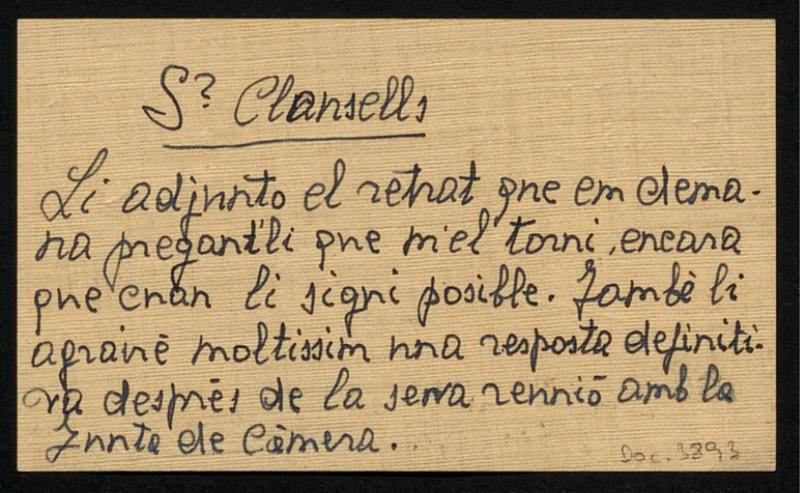 Sr Clansells
Li adjunto el retrat que em dema-
na pregant'li que m'el torni, encara
que cuan li sigui posible. També li
agrairé moltissim una resposta definiti-
va després de la seva reunió amb la
Junta de Càmera.
Doc. 3893